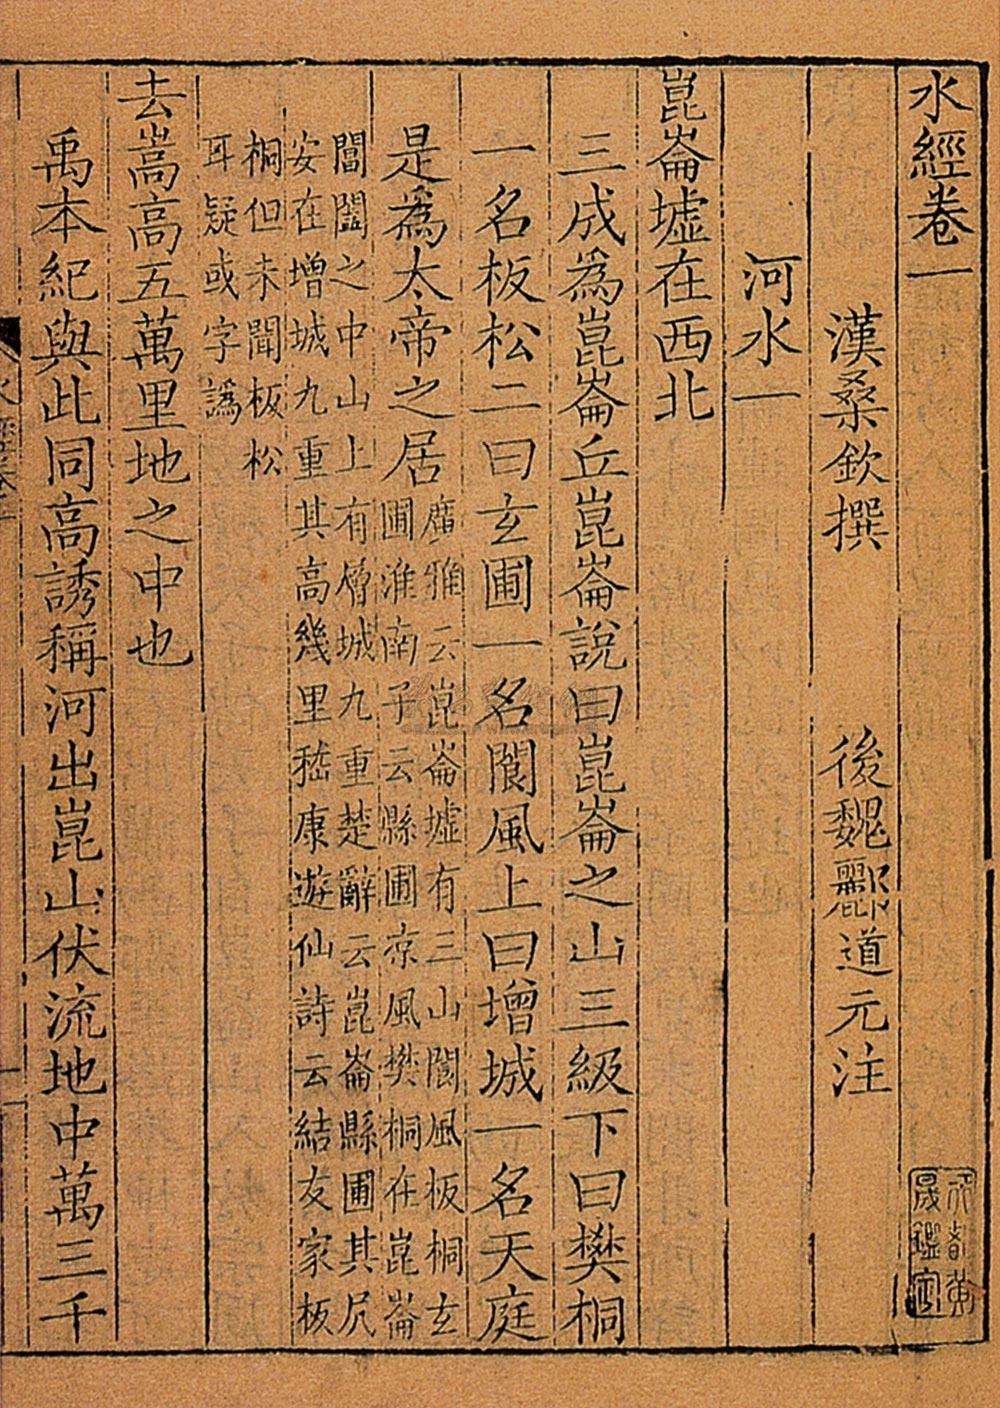 水經卷一
漢桑欽撰　後魏酈道元注
河水一
崑崙墟在西北
三成爲崑崙丘崑崙說曰崑崙之山三級下曰樊桐
一名板松二曰玄圃一名閬風上曰增城一名天庭
是爲太帝之居
廣雅云崑崙墟有三山閬風板桐玄
圃淮南子云縣圃凉風樊桐在崑崙
閶闔之中山上有層城九重楚辭云崑崙縣圃其凥
安在增城九重其高幾里嵇康遊仙詩云結友家板
桐但未聞板松
耳疑或字譌
去嵩高五萬里地之中也
禹本紀與此同高誘稱河出崑山伏流地中萬三千